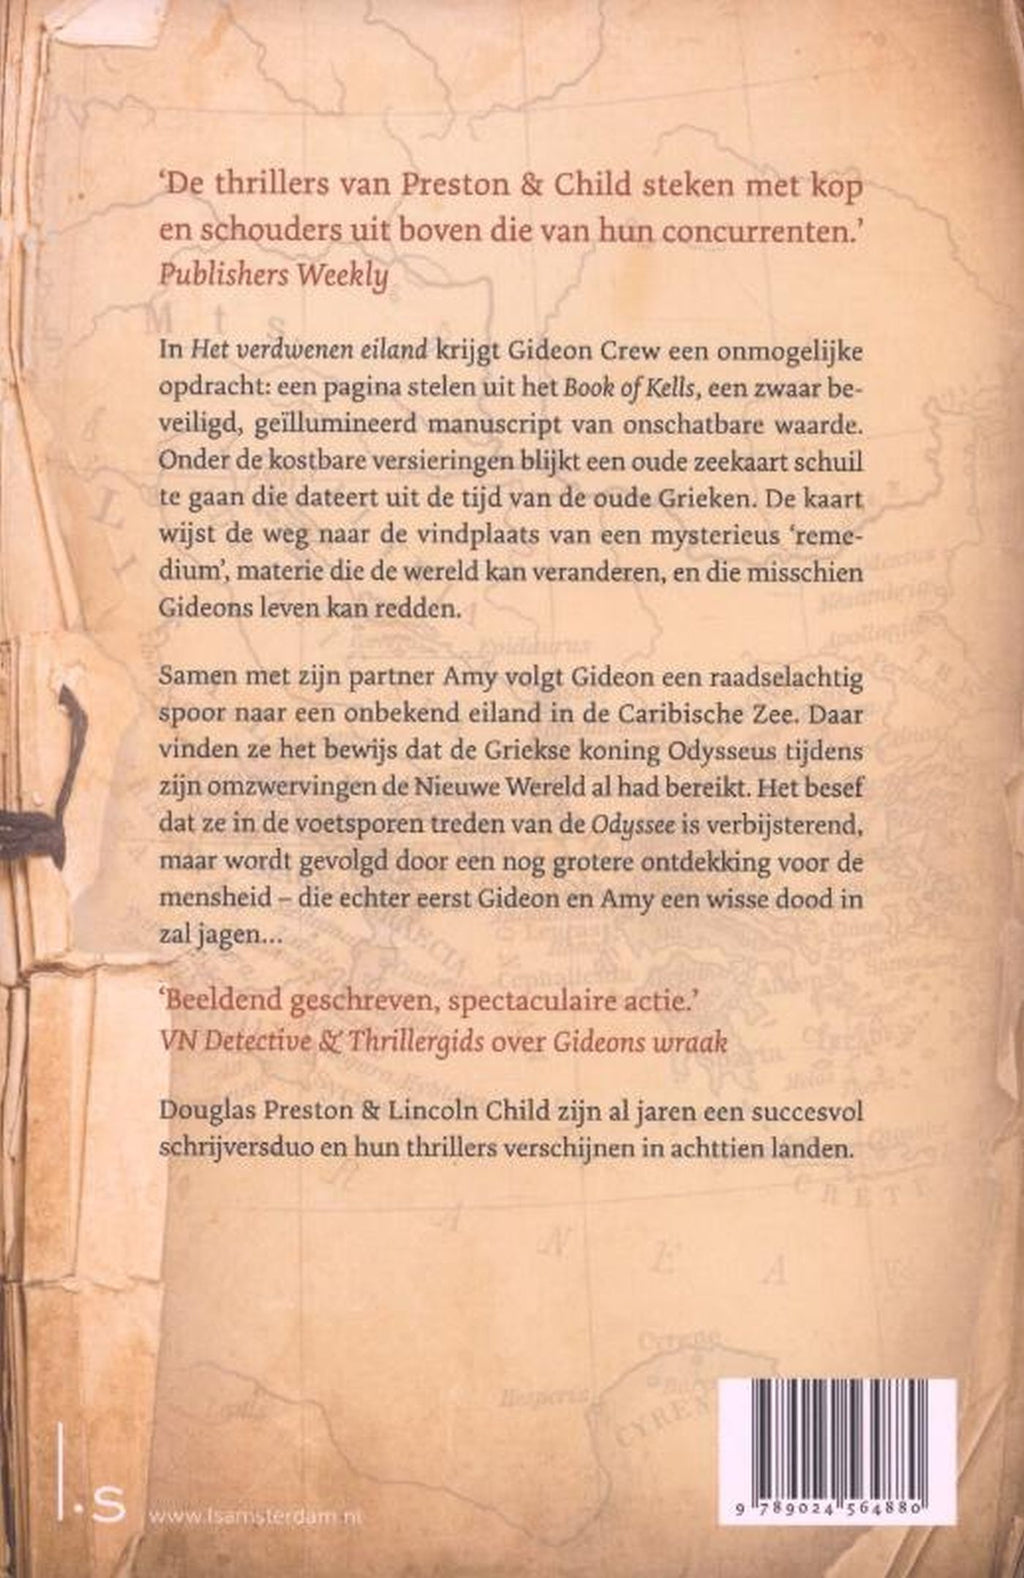 ‘De thrillers van Preston & Child steken met kop
en schouders uit boven die van hun concurrenten.’
Publishers Weekly
In Het verdwenen eiland krijgt Gideon Crew een onmogelijke
opdracht: een pagina stelen uit het Book of Kells, een zwaar be-
veiligd, geïllumineerd manuscript van onschatbare waarde.
Onder de kostbare versieringen blijkt een oude zeekaart schuil
te gaan die dateert uit de tijd van de oude Grieken. De kaart
wijst de weg naar de vindplaats van een mysterieus ‘reme-
dium’, materie die de wereld kan veranderen, en die misschien
Gideons leven kan redden.
Samen met zijn partner Amy volgt Gideon een raadselachtig
spoor naar een onbekend eiland in de Caribische Zee. Daar
vinden ze het bewijs dat de Griekse koning Odysseus tijdens
zijn omzwervingen de Nieuwe Wereld al had bereikt. Het besef
dat ze in de voetsporen treden van de Odyssee is verbijsterend,
maar wordt gevolgd door een nog grotere ontdekking voor de
mensheid – die echter eerst Gideon en Amy een wisse dood in
zal jagen...
‘Beeldend geschreven, spectaculaire actie.’
VN Detective & Thrillergids over Gideons wraak
Douglas Preston & Lincoln Child zijn al jaren een succesvol
schrijversduo en hun thrillers verschijnen in achttien landen.
CRETE
Cyrene
CYREN
l.s www.lsamsterdam.nl
9 789024 564880